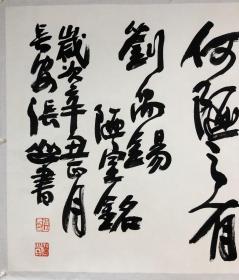 何陋之有
劉禹錫
陋室銘
歲次辛丑正月
長安張
書